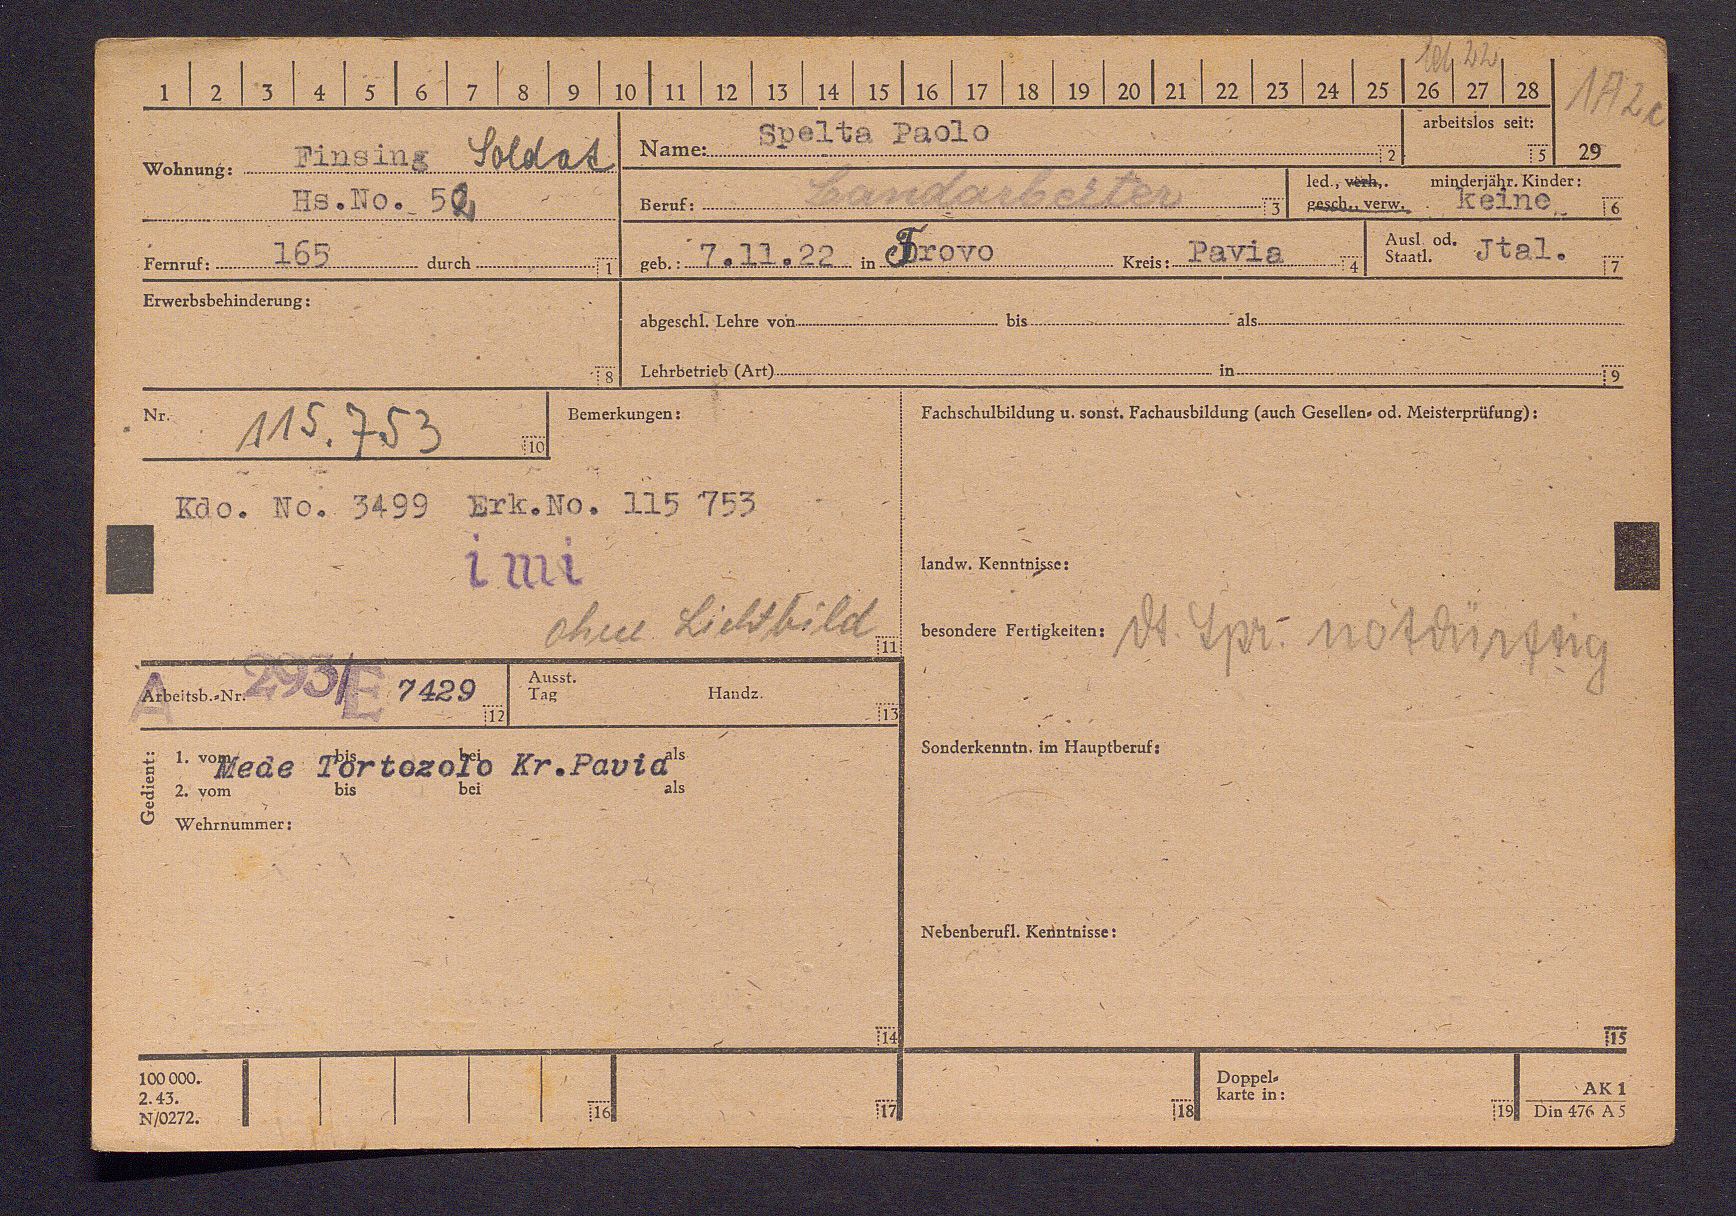 1 2 3 4 5 6 7 8 9 10 11 12 13 14 15 16 17 18 19 20 21 22 23 24 25 26 27 28
22
29
Wohnung: Finsing Soldat
Hs.No. 52
Fernruf: 165 durch 1
Name: Spelta Paolo 2
arbeitslos seit: 5
Beruf: Landarbeiter 3
led., verh., minderjähr. Kinder:
gesch., verw. keine 6
geb.: 7.11.22 in Trovo Kreis: Pavia 4
Ausl. od. Staatl. Jtal. 7
Erwerbsbehinderung:
8
abgeschl. Lehre von bis als
Lehrbetrieb (Art) in 9
Nr. 115.753 10
Bemerkungen:
Kdo. No. 3499 Erk.No. 115 753
imi
ohne Lichtbild
11
Fachschulbildung u. sonst. Fachausbildung (auch Gesellen- od. Meisterprüfung):
landw. Kenntnisse:
besondere Fertigkeiten: dt. Spr. notdürftig
Sonderkenntn. im Hauptberuf:
Nebenberufl. Kenntnisse:
15
A Arbeitsb.-Nr. 293/E 7429 12
Ausst. Tag Handz. 13
Gedient:
1. vom bis bei als
Mede Tortozolo Kr.Pavia
2. vom bis bei als
Wehrnummer:
14
100 000.
2. 43.
N/0272.
16 17 18
Doppel-
karte in: 19
AK 1
Din 476 A 5